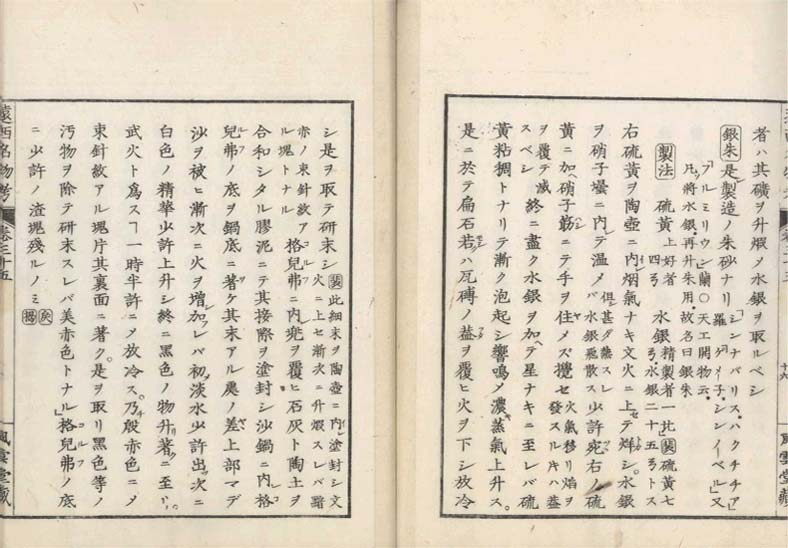 者ハ其礦ヲ升煆メ水銀ヲ取ルベシ
銀朱 是レ製造ノ朱砂ナリ 「シンナバリス・ハクチチア」羅「ゲイ子・シンノーベル」又「フルミリウン」蘭○天工開物云凡將水銀再升朱用故名曰銀朱
製法 硫黄上好者四弓 水銀精製者一比 硫黄七弓水銀二十五弓トス
右硫黄ヲ陶壺ニ内レ烟氣ナキ文火ニ上テ烊シ。水銀
ヲ硝子壜ニ内テ温メ 水銀飛散ス 少許宛右ノ硫
黄ニ加ヘ硝子筋ニテ手ヲ住メズ攪セ 火氣移リ焰ヲ發スルキハ葢
ヲ覆テ滅スベシ 終ニ盡ク水銀ヲ加ヘテ星ナキニ至レバ硫
黄粘稠トナリテ漸ク泡起シ響鳴メ濃蒸氣上升ス。
是ニ於テ扁石若クハ瓦磚ノ葢ヲ覆ヒ火ヲ下シ放冷
風雲堂藏
シ是ヲ取テ研末シ 此細末ヲ陶壺ニ内レ塗封シ文火ニ上セ漸次ニ升煆スレバ黯
赤ノ束針紋アル塊トナル 格兒弗ニ内レ兜ヲ覆ヒ石灰ト陶土ヲ
合和シタル膠泥ニテ其接際ヲ塗封シ沙鍋ニ内レ格
兒弗ノ底ヲ鍋底ニ著ケ其末アル處ノ差上部マデ
沙ヲ被ヒ漸次ニ火ヲ増加フレバ初淡水少許出ツ次ニ
白色ノ精華少許上升シ終ニ黒色ノ物升リ著クニ至ル。
武火ト爲ス「一時半許ニメ放冷ス。乃チ殷赤色ニメ
束針紋アル塊片其裏面ニ著ク。是ヲ取リ黒色等ノ
汚物ヲ除テ研末スレバ美赤色トナル」格兒弗ノ底
ニ少許ノ渣塊殘ルノミ
遠西名物考 卷三十五
風雲堂藏